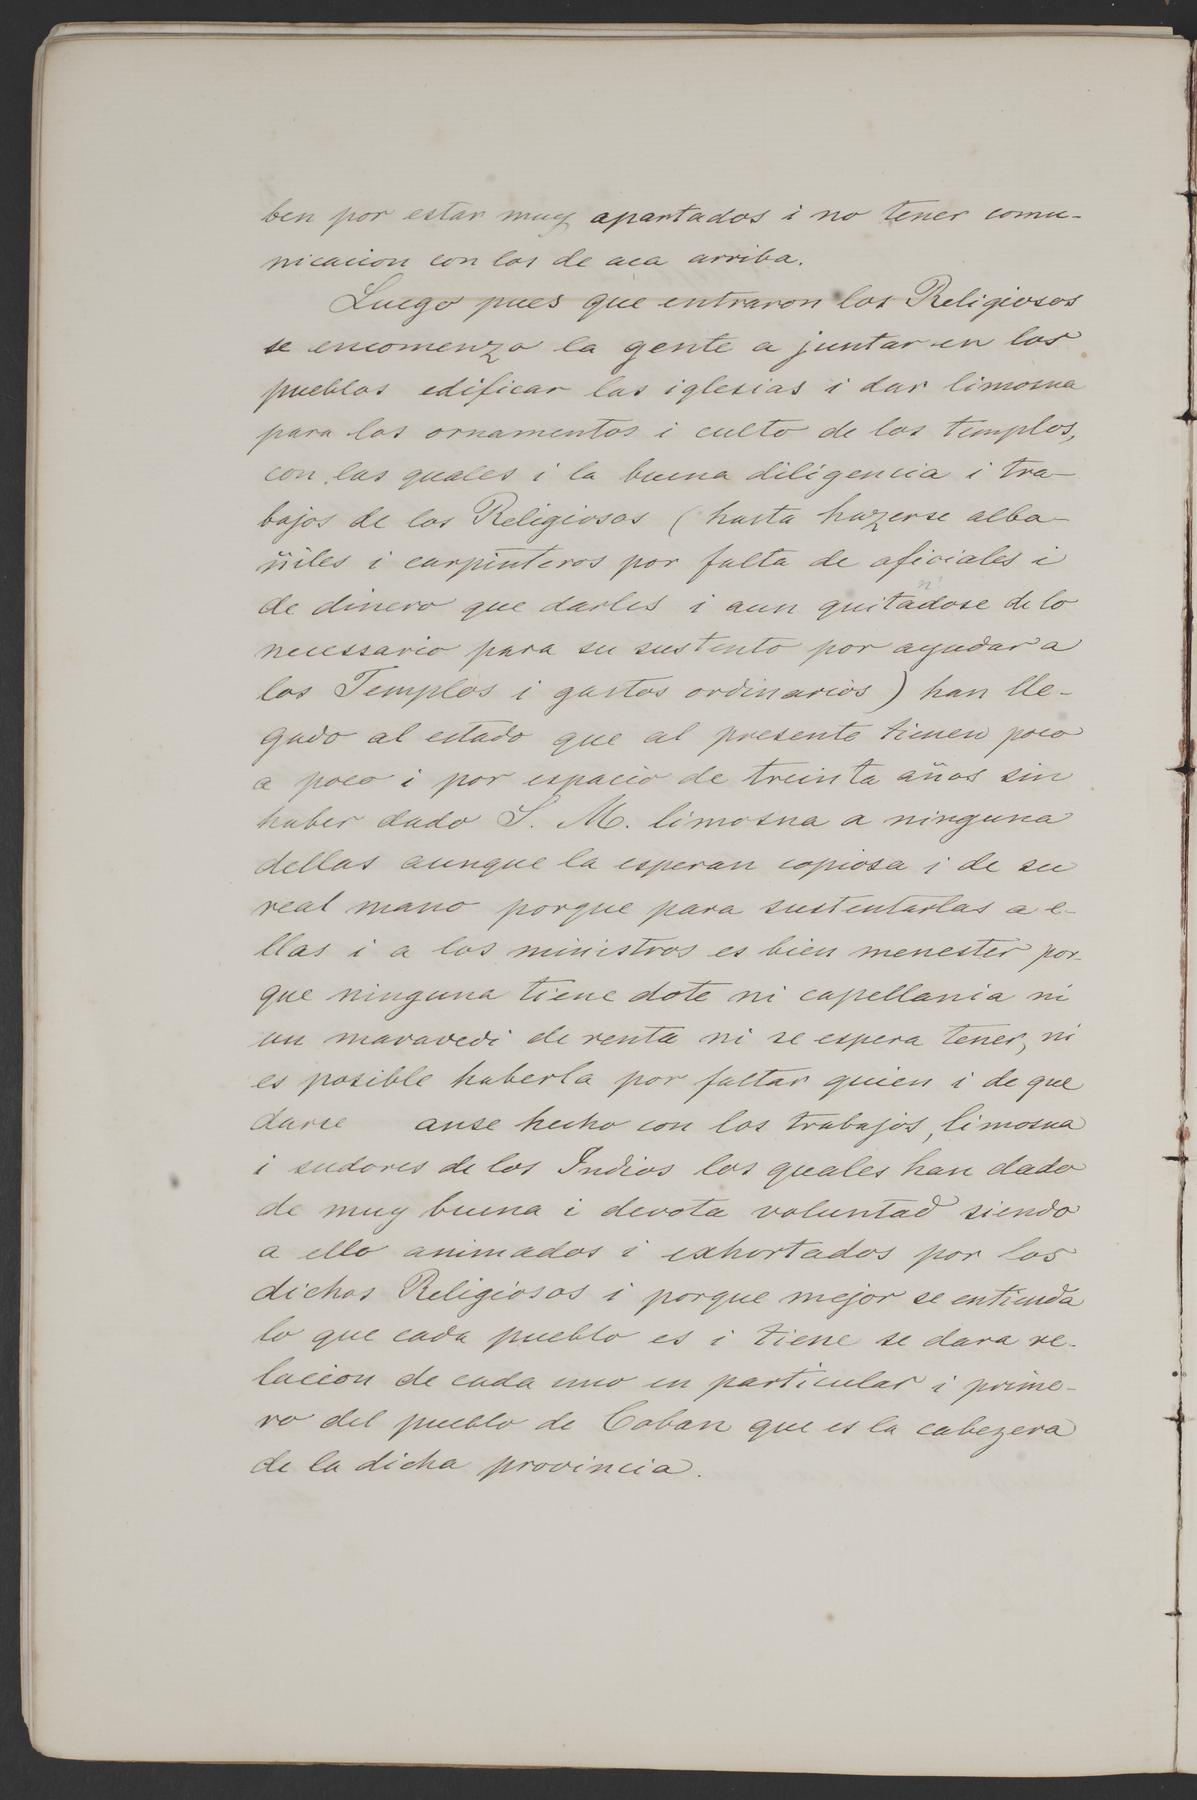 ben por estar muy apartados i no tener comu-
nicacion con los de aca arriba.
Luego pues que entraron los Religiosos
se encomenzo la gente a juntar en los
pueblos edificar las iglesias i dar limosna
para los ornamentos i culto de los templos,
con las quales i la buena diligencia i tra-
bajos de los Religiosos (hasta hazerse alba-
ñiles i carpinteros por falta de oficiales i
de dinero que darles i aun quitadose de lo
necessario para su sustento por ayudar a
los Templos i gastos ordinarios) han lle-
gado al estado que al presente tienen poco
a poco i por espacio de treinta años sin
haber dado S. M. limosna a ninguna
dellas aunque la esperan copiosa i de su
real mano porque para sustentarlas a e-
llas i a los ministros es bien menester por-
que ninguna tiene dote ni capellania ni
un maravedi de renta ni se espera tener, ni
es posible haberla por faltar quien i de que
darse anse hecho con los trabajos, limosna
i sudores de los Indios los quales han dado
de muy buena i devota voluntad siendo
a ello animados i exhortados por los
dichos Religiosos i porque mejor se entienda
lo que cada pueblo es i tiene se dara re-
lacion de cada uno en particular i prime-
ro del pueblo de Coban que es la cabezera
de la dicha provincia.